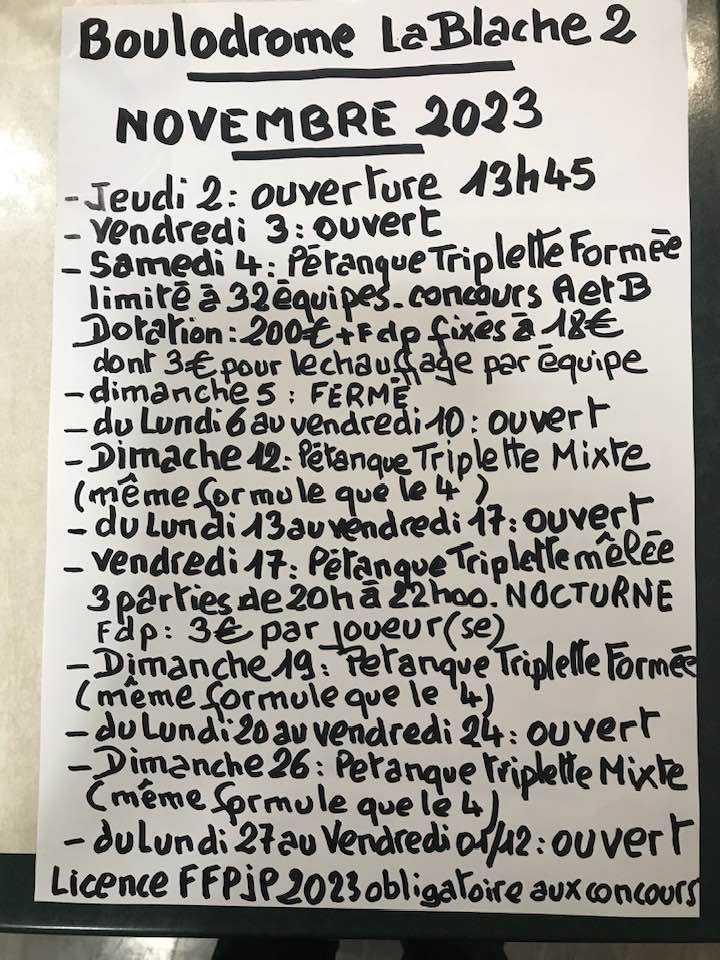 Boulodrome LaBlache 2
NOVEMBRE 2023
- Jeudi 2: ouverture 13h45
- Vendredi 3: ouvert
- Samedi 4: Pétanque Triplette Formée
limité à 32 équipes. concours A et B
Dotation: 200€ + Fdp fixés à 18€
dont 3€ pour le chauffage par équipe
- dimanche 5 : FERMÉ
- du Lundi 6 au vendredi 10: ouvert
- Dimache 12: Pétanque Triplette Mixte
(même formule que le 4)
- du Lundi 13 au vendredi 17: ouvert
- vendredi 17: Pétanque Triplette mêlée
3 parties de 20h à 22h00. NOCTURNE
Fdp: 3€ par joueur(se)
- Dimanche 19: Petanque Triplette Formée
(même formule que le 4)
- du Lundi 20 au vendredi 24: ouvert
- Dimanche 26: Petanque triplette Mixte
(même formule que le 4)
- du Lundi 27 au Vendredi 01/12: ouvert
Licence FFPJP 2023 obligatoire aux concours